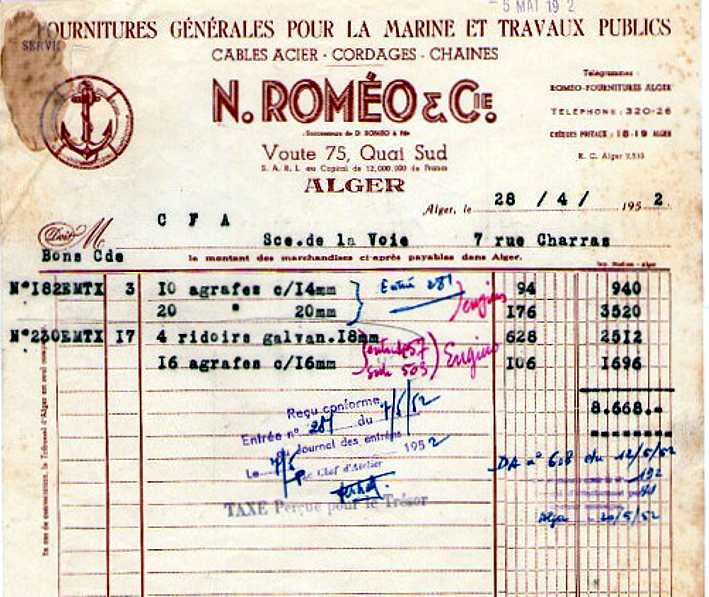 - 5 MAI 19 2
FOURNITURES GÉNÉRALES POUR LA MARINE ET TRAVAUX PUBLICS
SERVI
CABLES ACIER - CORDAGES - CHAINES
N. ROMÉO & CIE.
Successeurs de D. ROMÉO & Fils
Voute 75, Quai Sud
S. A. R. L. au Capital de 12.000.000 de Francs
ALGER
Télégrammes :
ROMÉO-FOURNITURES ALGER
TÉLÉPHONE : 320-26
CHÈQUES POSTAUX : 18-19 ALGER
R. C. Alger
Alger, le 28 / 4 / 195 2
Doit M C F A
Sce.de la Voie 7 rue Charras
Bons Cde le montant des marchandises ci-après payables dans Alger.
N°182EMTX 3 10 agrafes c/14mm Entrée 281 94 940
20 " 20mm engins 176 3520
N°230EMTX 17 4 ridoirs galvan.18mm 628 2512
16 agrafes c/16mm 503 Engins 106 1696
8.668.-
Reçu conforme
Entrée n° 281 du 7/5/52
au Journal des entrées
Le 7/5 1952
Le Chef d'Atelier
TAXE Perçue pour le Trésor
DA n° 628 du 12/5/52
192
Alger 20/5/52